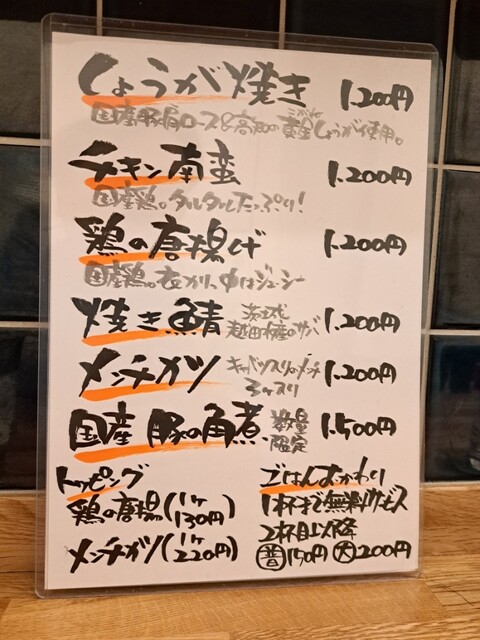 しょうが焼き 1.200円
国産豚肩ロース&高知の黄金しょうが使用。
チキン南蛮 1.200円
国産鶏。タルタルたっぷり!
鶏の唐揚げ 1.200円
国産鶏。衣カリ、中はジューシー
焼き鯖 1.200円
越田のサバ
メンチカツ 1.200円
キャベツ入りのメンチ
国産 豚の角煮 1.500円
数量限定
トッピング
鶏の唐揚(1ヶ130円)
メンチカツ(1ヶ220円)
ごはんおかわり
1杯まで無料サービス
2杯目以降
普150円 大200円